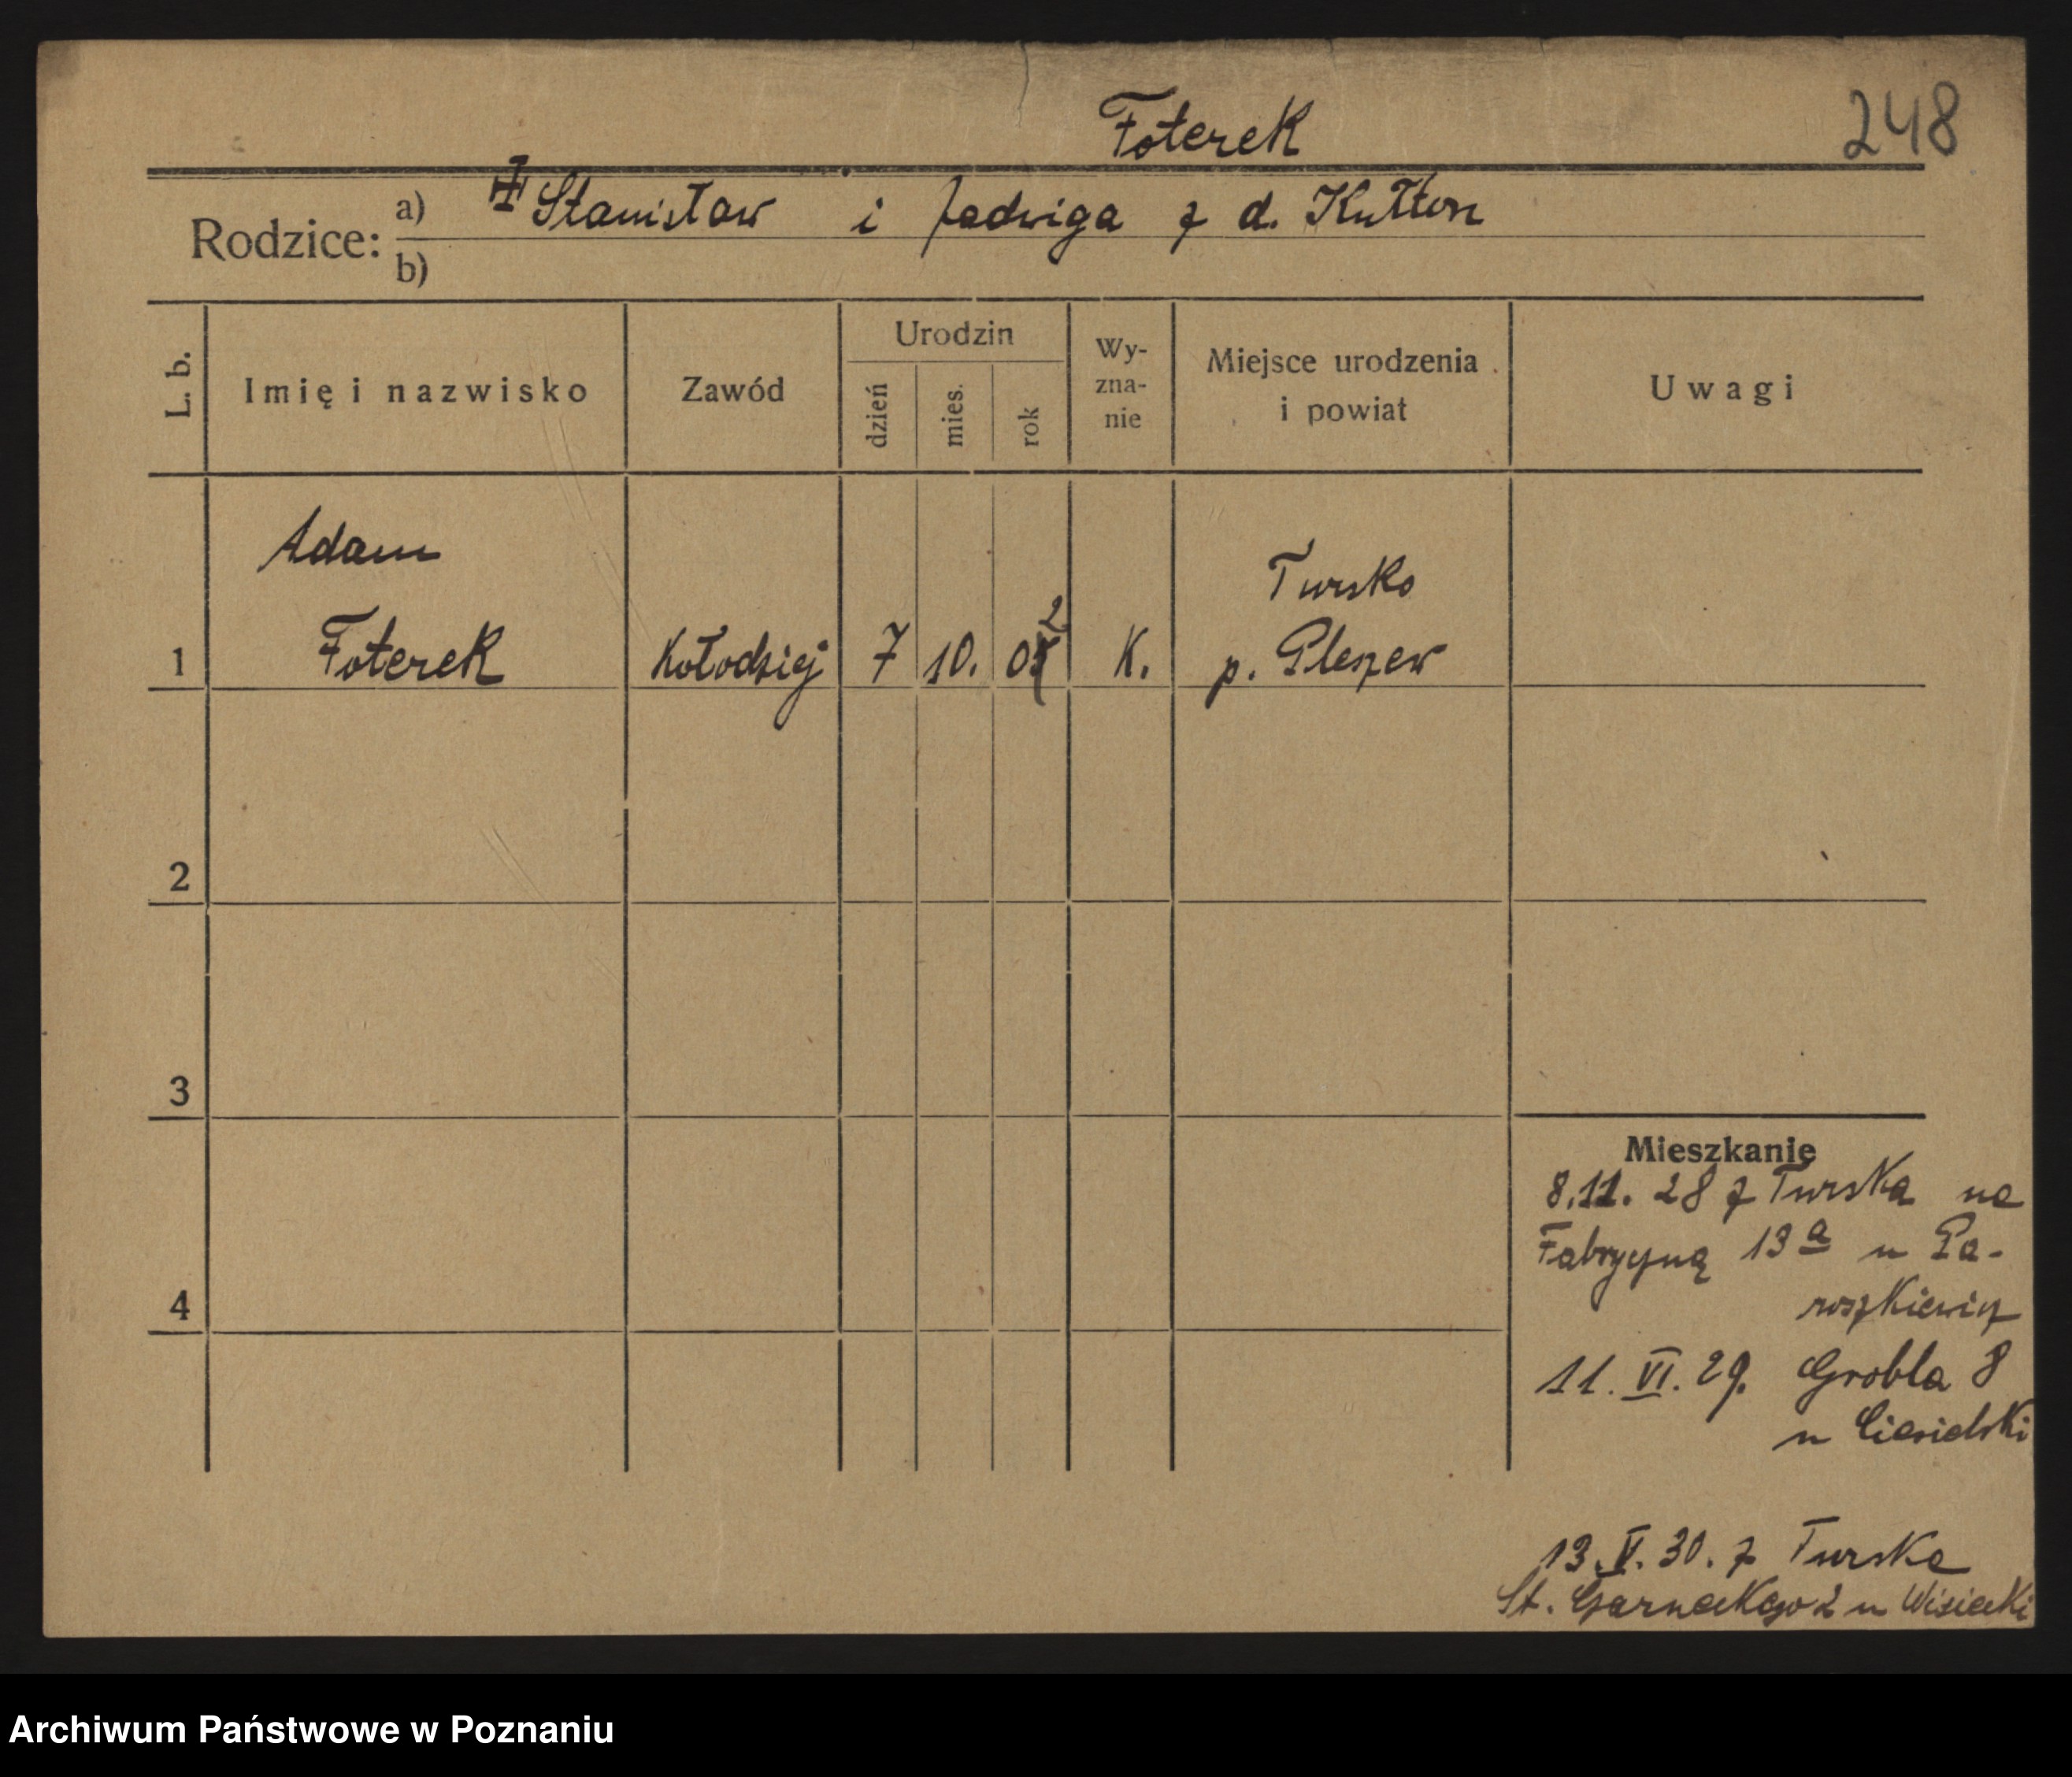 Foterek
248
Rodzice: a) Stanisław i Jadwiga z d. Kułton
b)
L. b.
Imię i nazwisko
Zawód
Urodzin
dzień
mies.
rok
Wy-
zna-
nie
Miejsce urodzenia
i powiat
Uwagi
Adam
Tursko
1 Foterek Kołodziej 7 10. 02 K. p. Pleszew
2
3
4
Mieszkanie
8.11. 28 z Turska na
Fabryczną 13 a u Pa-
roszkiewicz
11. VI. 29. Grobla 8
u Ciesielski
13. V. 30. z Turska
St. Czarneckego 2 u Wisiecki
Archiwum Państwowe w Poznaniu